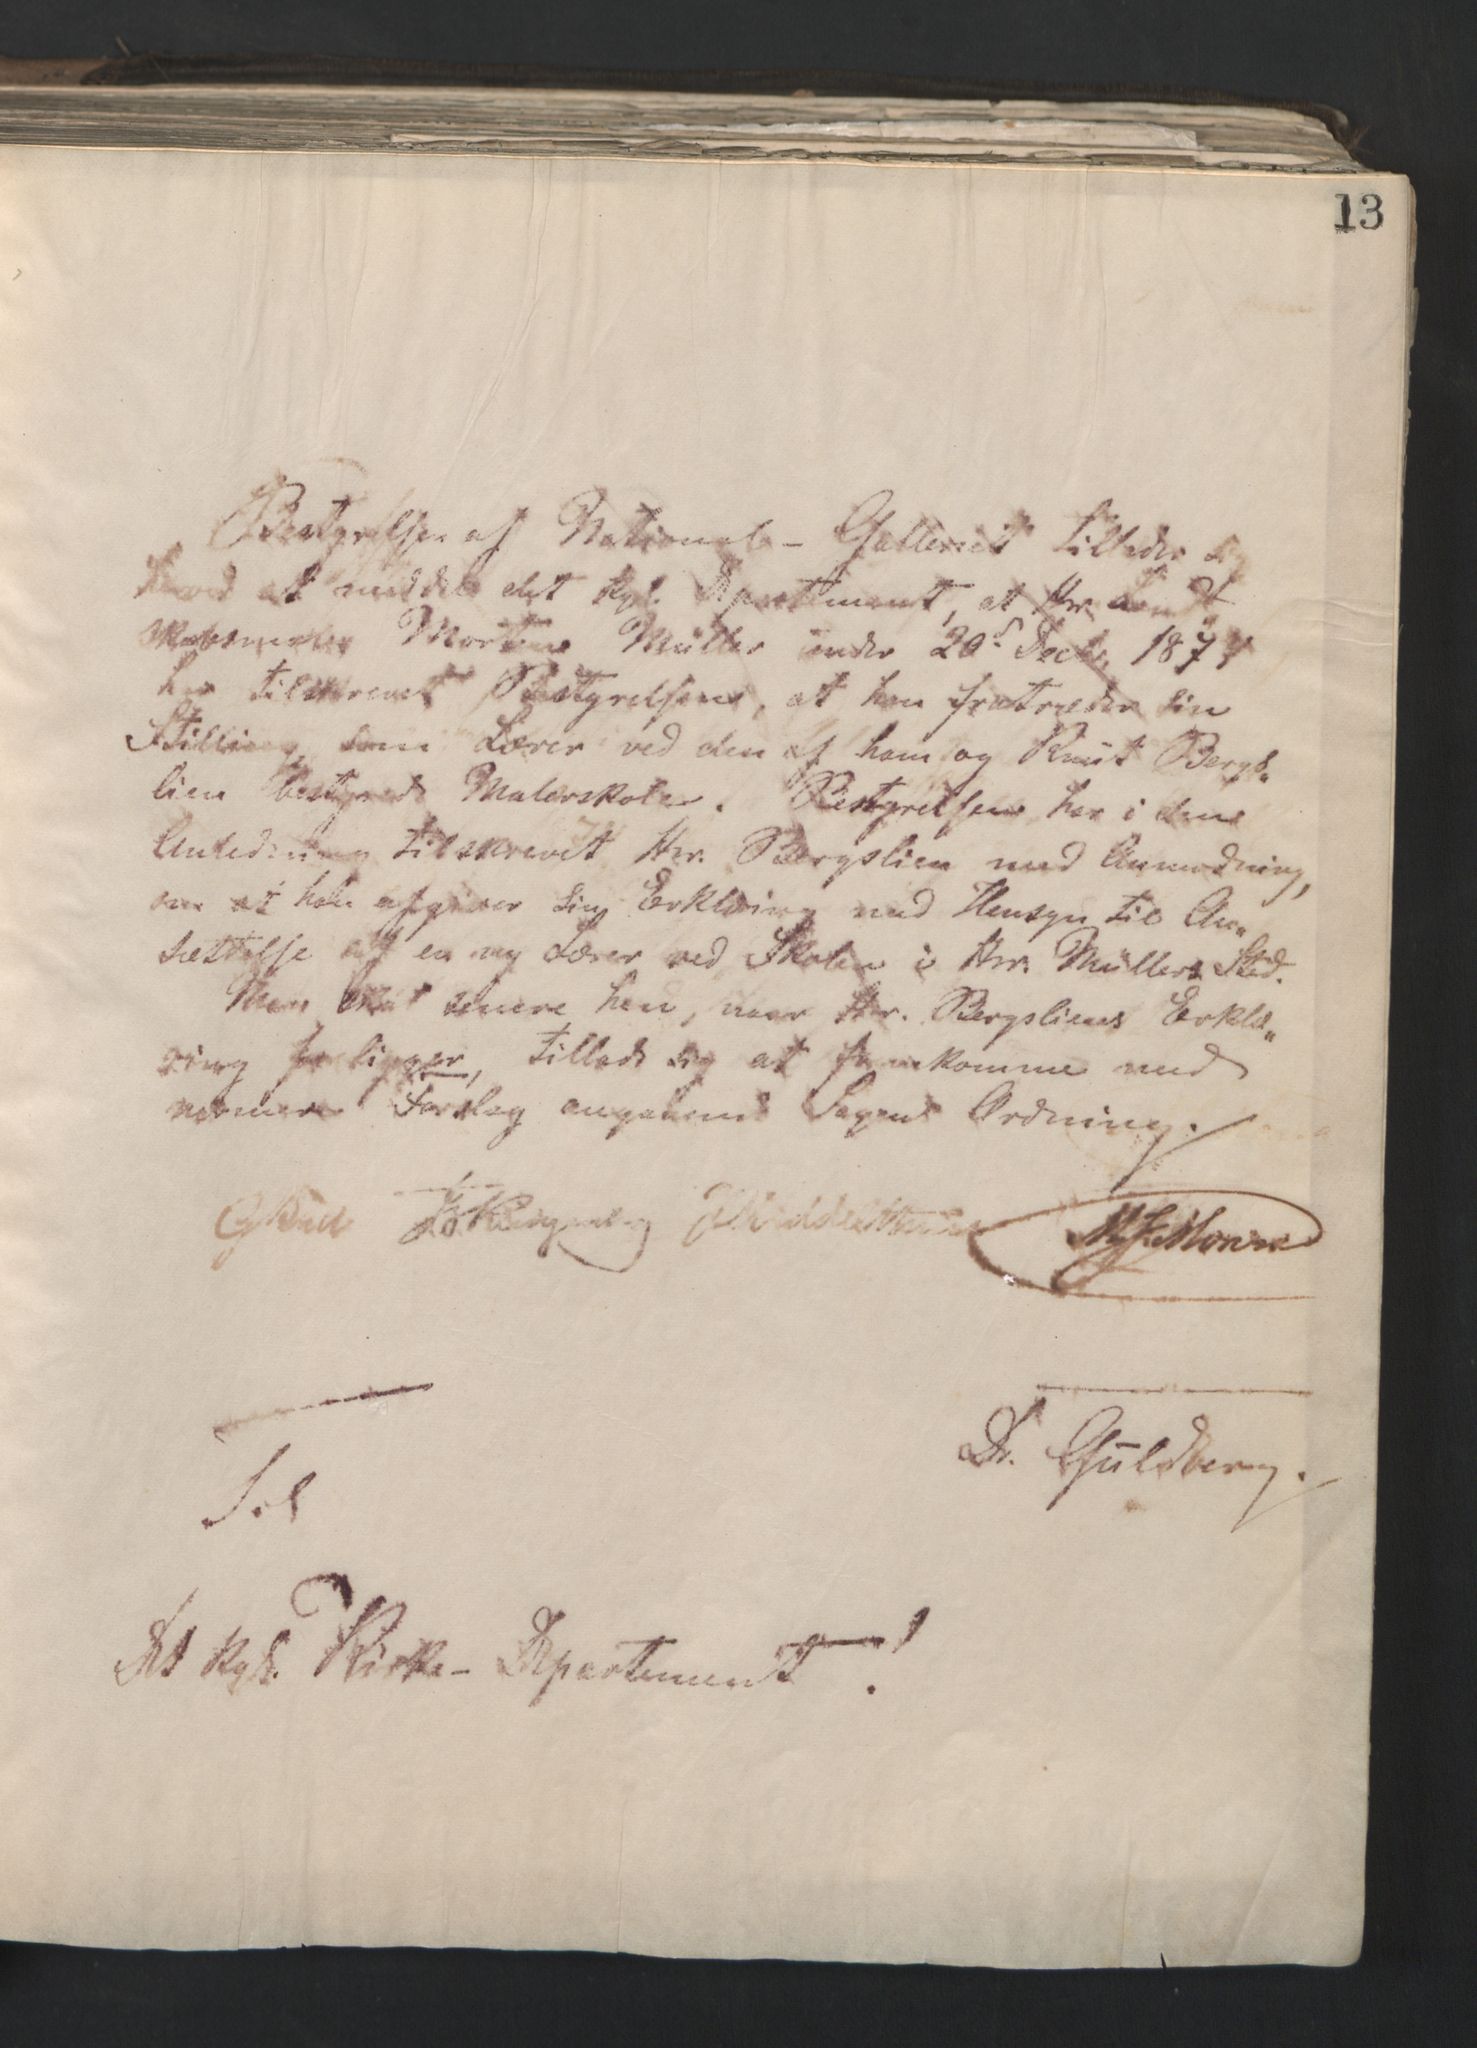 13
Bestyrelsen af National-Galleriet tillader sig
herved at meddele det kgl. Departement, at Hr. Land-
skabsmaler Morten Müller under 20d Decbr. 1874
har tilskrevet Bestyrelsen, at han fratræder sin
Stilling som Lærer ved den af ham og Knut Bergs„
lien bestyrede Malerskole. Bestyrelsen har i den
Anledning tilskrevet Hr. Bergslien med Anmodning,
om at han afgiver sin Erklæring med Hensyn til An„
sættelse af en ny Lærer ved Skolen i Hr. Müllers Sted.
Man skal senere hen, naar Hr. Bergsliens Erklæ„
ring foreligger, tillade sig at fremkomme med
nærmere Forslag angaaende Sagens Ordning.
Middelthun
Dr. Guldberg.
Til
Det kgl. Kirke-Departement!